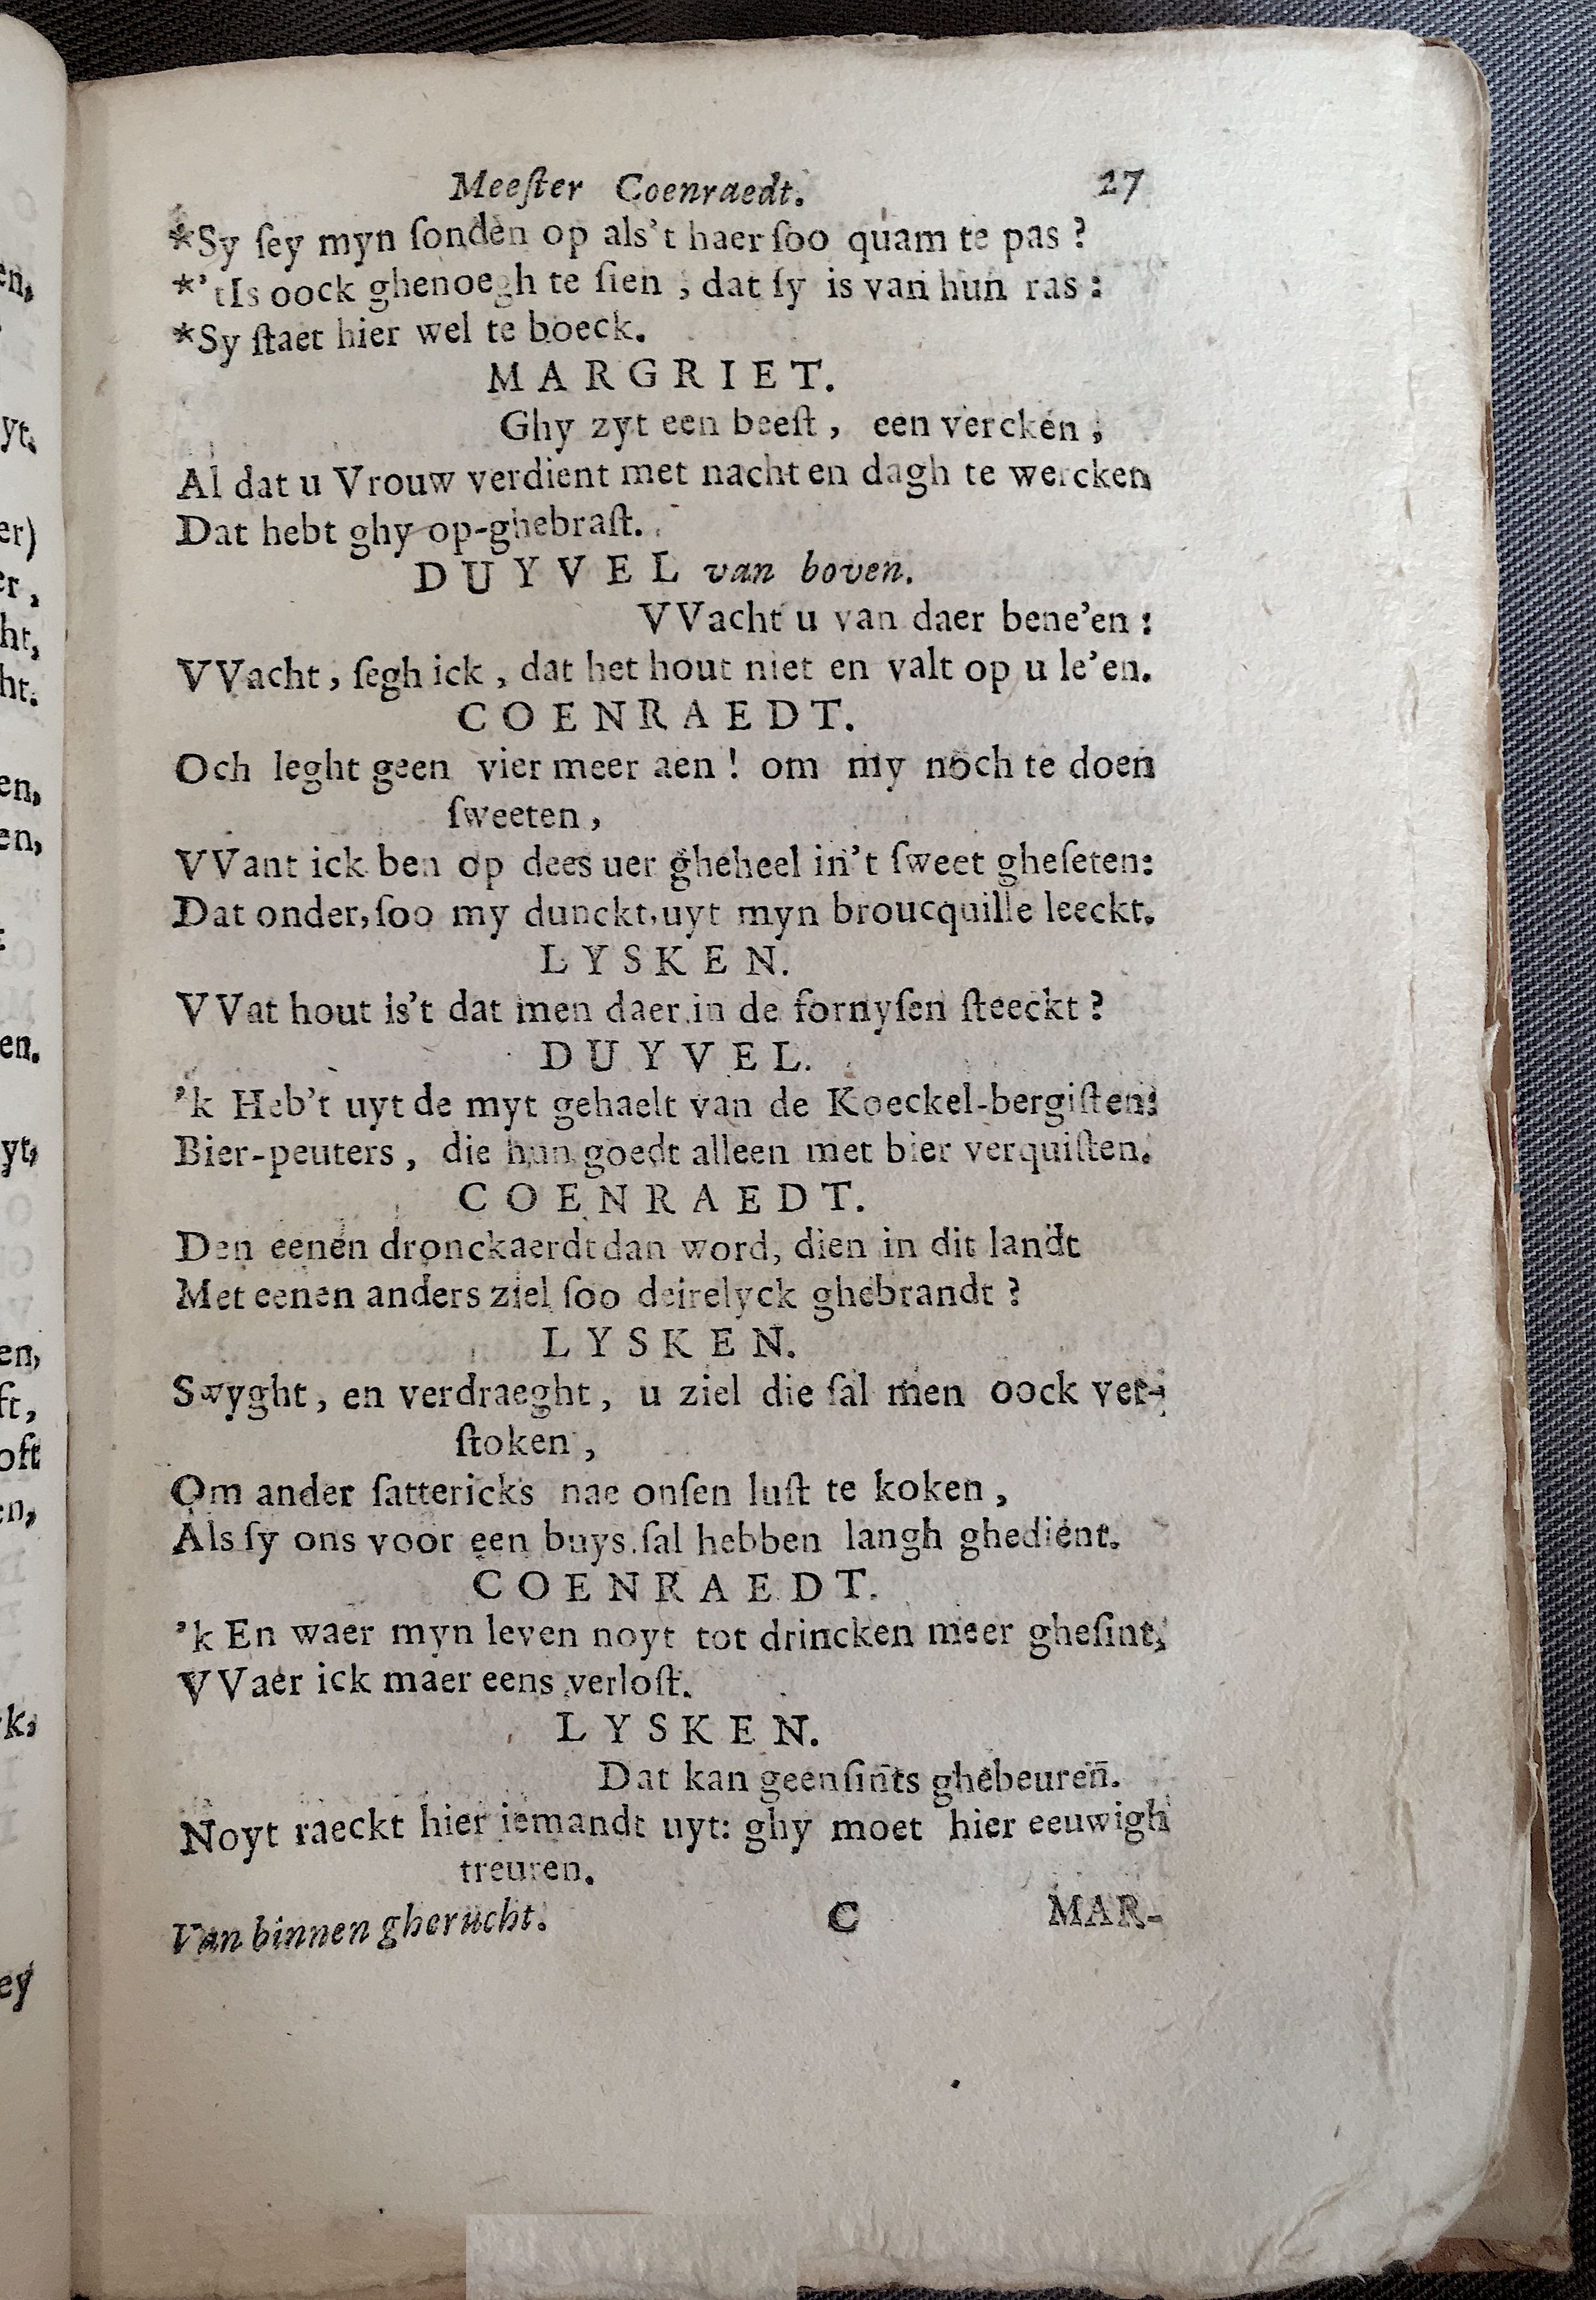 Meeſter Coenraedt. 27
*Sy ſey myn ſonden op als't haer ſoo quam te pas ?
*'tIs oock ghenoegh te ſien ; dat ſy is van hun ras :
*Sy ſtaet hier wel te boeck.
MARGRIET.
Ghy zyt een beeſt, een vercken ;
Al dat u Vrouw verdient met nacht en dagh te wercken
Dat hebt ghy op-ghebraſt.
DUYVEL van boven.
VVacht u van daer bene'en :
VVacht, ſegh ick, dat het hout niet en valt op u le'en.
COENRAEDT.
Och leght geen vier meer aen ! om my noch te doen
ſweeten,
VVant ick ben op dees uer gheheel in't ſweet gheſeten:
Dat onder, ſoo my dunckt, uyt myn broucquille leeckt.
LYSKEN.
VVat hout is't dat men daer in de fornyſen ſteeckt ?
DUYVEL.
'k Heb't uyt de myt gehaelt van de Koeckel-bergiſten:
Bier-peuters, die hun goedt alleen met bier verquiſten.
COENRAEDT.
Den eenen dronckaerdt dan word, dien in dit landt
Met eenen anders ziel ſoo deirelyck ghebrandt ?
LYSKEN.
Swyght, en verdraeght, u ziel die ſal men oock ver-
ſtoken,
Om ander ſattericks nae onſen luſt te koken,
Als ſy ons voor een buys ſal hebben langh ghedient.
COENRAEDT.
'k En waer myn leven noyt tot drincken meer gheſint,
VVaer ick maer eens verloſt.
LYSKEN.
Dat kan geenſin̄ts ghebeuren̄.
Noyt raeckt hier iemandt uyt: ghy moet hier eeuwigh
treuren.
Van binnen gherucht. C MAR-
en,
yt.
er)
er,
ht,
ht.
en,
en,
en.
yt,
en,
ſt,
oft
en,
k,
ey